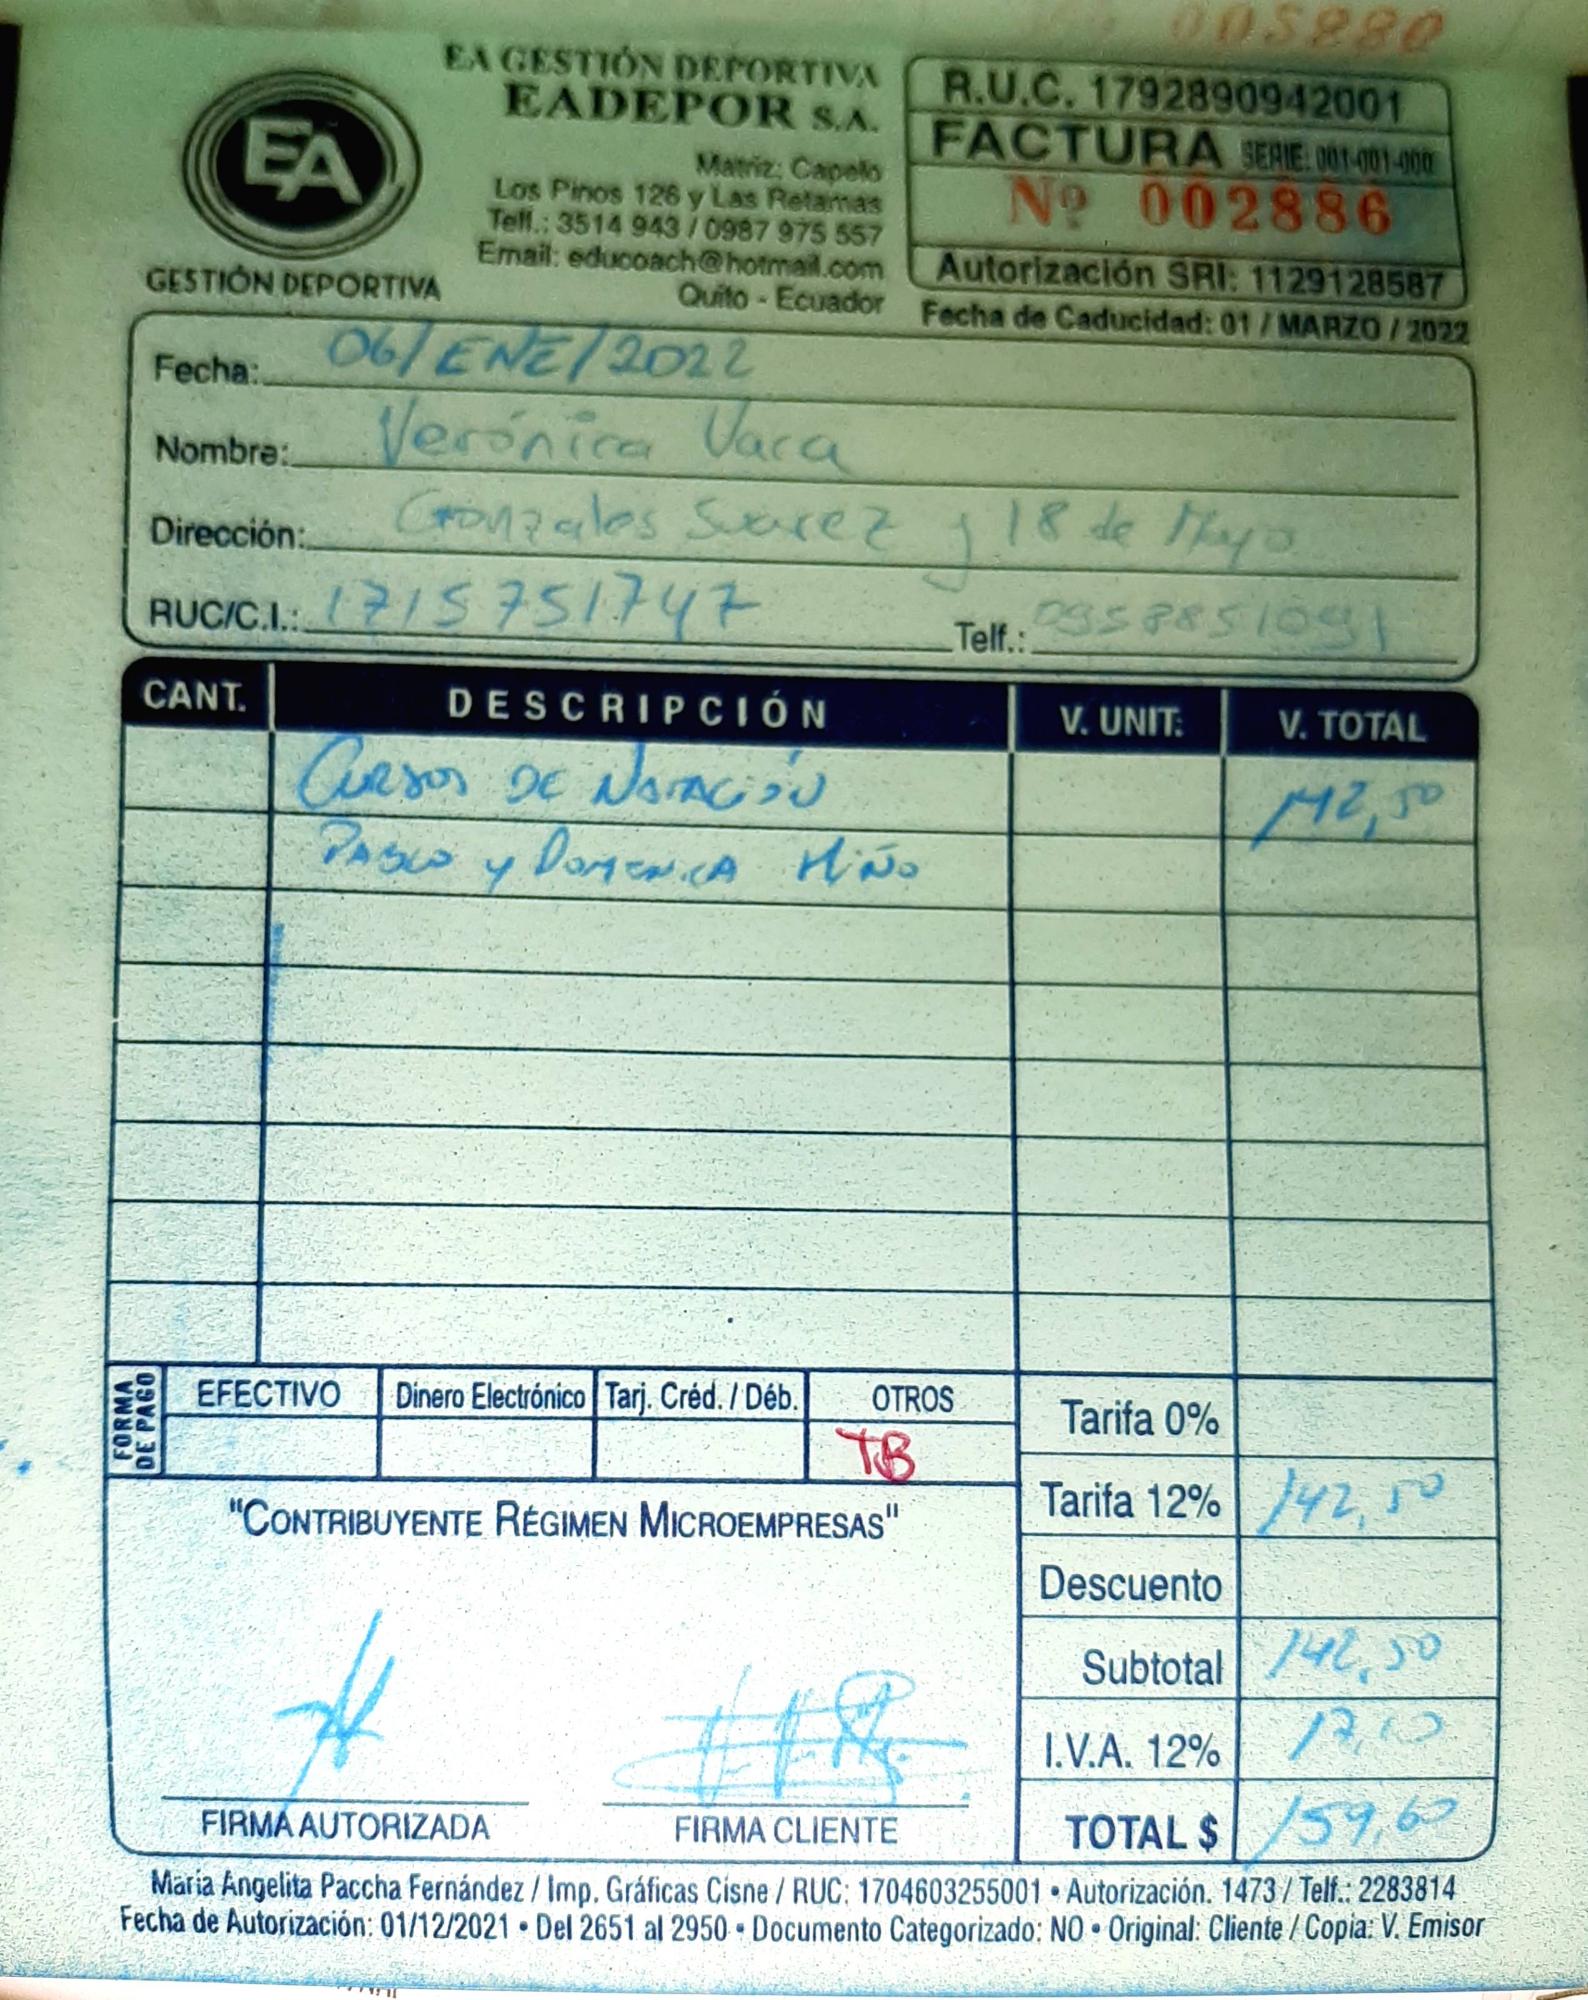 EA GESTIÓN DEPORTIVA
EADEPOR S.A.
Matriz: Capelo
Los Pinos 126 y Las Retamas
Telf.: 3514 943 / 0987 975 557
Email: educoach@hotmail.com
Quito - Ecuador
EA
GESTIÓN DEPORTIVA
R.U.C. 1792890942001
FACTURA SERIE: 001-001-000
Nº 002886
Autorización SRI: 1129128587
Fecha de Caducidad: 01 / MARZO / 2022
Fecha: 06/ENE/2022
Nombre: Verónica Vaca
Dirección: Gonzales Suarez y 18 de Mayo
RUC/C.I.: 1715751747 Telf.: 0958851091
CANT. DESCRIPCIÓN V. UNIT: V. TOTAL
CURSOS DE NATACIÓN 142,50
PABLO y DOMENICA MIÑO
FORMA DE PAGO
EFECTIVO Dinero Electrónico Tarj. Créd. / Déb. OTROS
TB
Tarifa 0%
Tarifa 12% 142,50
Descuento
Subtotal 142,50
I.V.A. 12% 17,10
TOTAL $ 159,60
"CONTRIBUYENTE RÉGIMEN MICROEMPRESAS"
FIRMA AUTORIZADA FIRMA CLIENTE
María Angelita Paccha Fernández / Imp. Gráficas Cisne / RUC: 1704603255001 • Autorización. 1473 / Telf.: 2283814
Fecha de Autorización: 01/12/2021 • Del 2651 al 2950 • Documento Categorizado: NO • Original: Cliente / Copia: V. Emisor